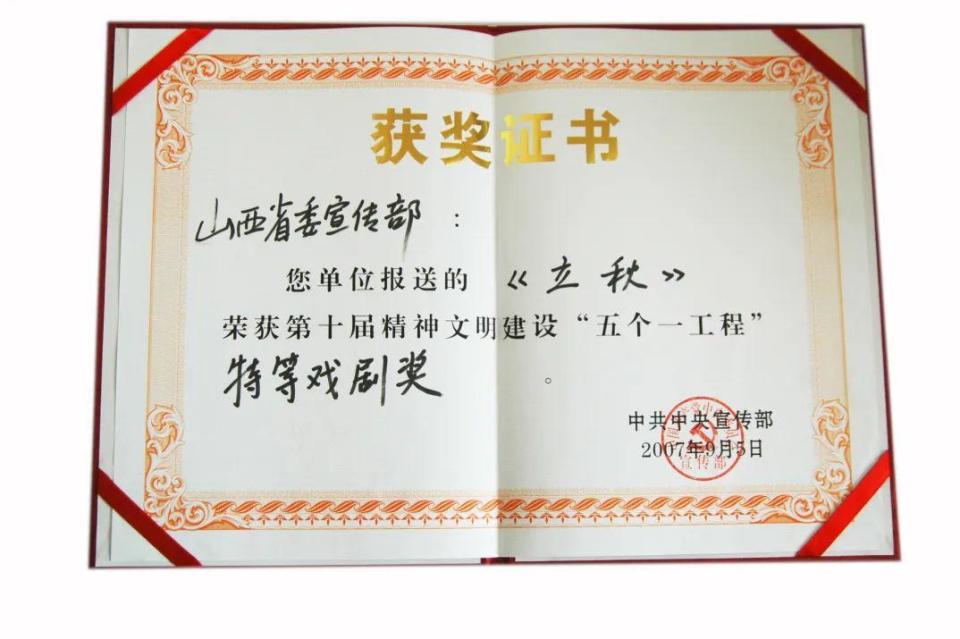 获奖证书
山西省委宣传部：
您单位报送的 《立秋》
荣获第十届精神文明建设“五个一工程”
特等戏剧奖 。
中共中央宣传部
2007年9月5日
宣传部